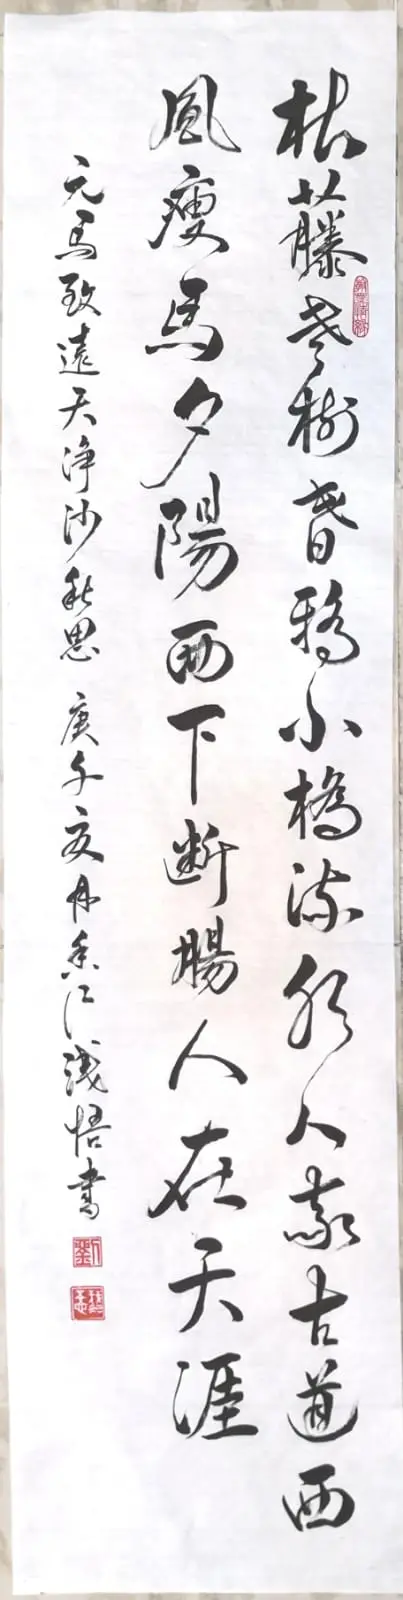 枯藤老樹昏鴉小橋流水人家古道西
風瘦馬夕陽西下断腸人在天涯
元馬致遠天浄沙秋思 庚子亥月香江浅悟書